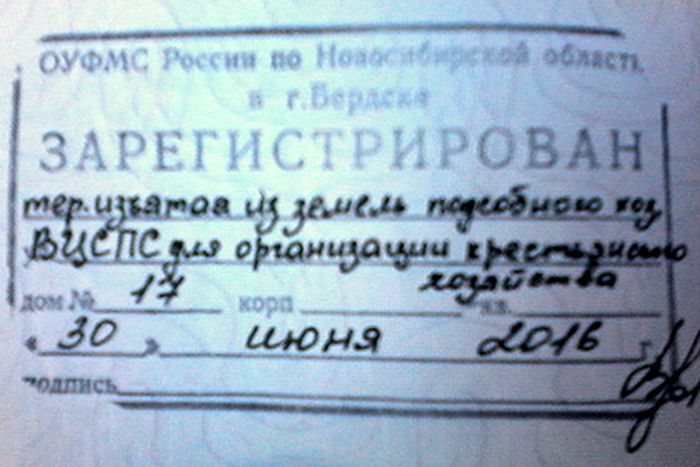 ОУФМС России по Новосибирской области
в г.Бердске
ЗАРЕГИСТРИРОВАН
тер. изъятая из земель подсобного хоз
ВЦСПС для организации крестьянского
хозяйства
дом № 17 корп кв.
« 30 » июня 2016 г
подпись